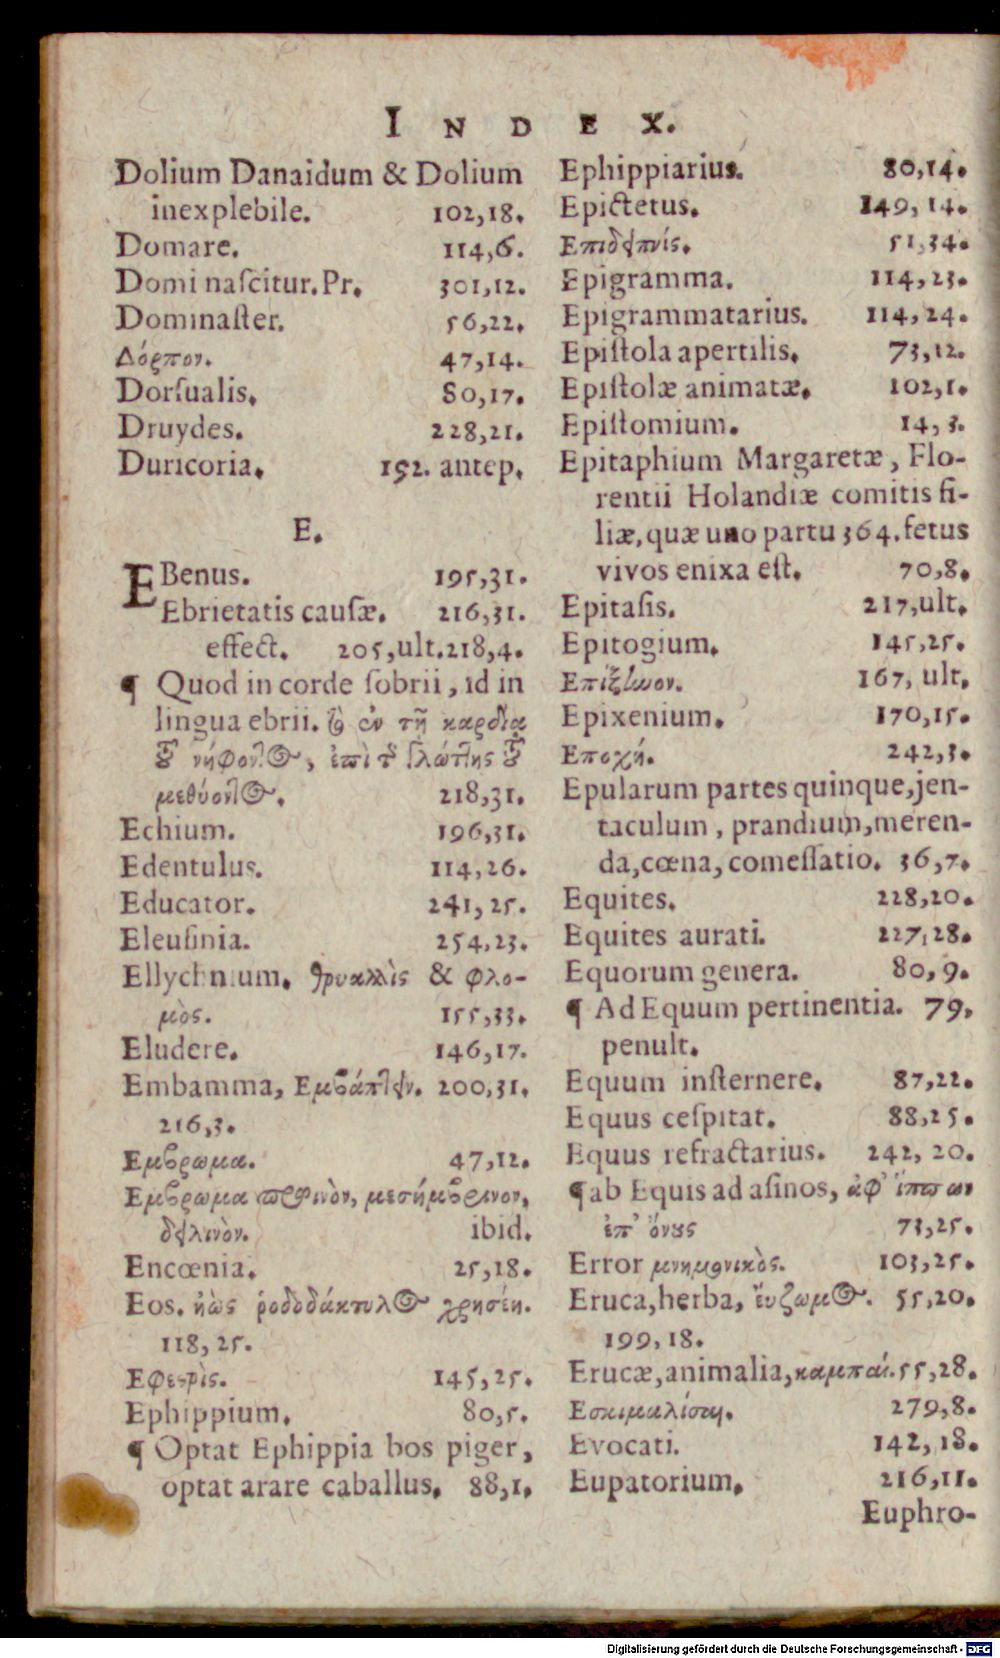 INDEX.
Dolium Danaidum & Dolium
inexplebile. 102,18.
Domare. 114,6.
Domi naſcitur. Pr. 301,12.
Dominaſter. 56,22.
Δόρπον. 47,14.
Dorſualis. 80,17.
Druydes. 228,21.
Duricoria. 192. antep.
E.
EBenus. 195,31.
Ebrietatis cauſæ. 216,31.
effect. 205,ult.218,4.
¶ Quod in corde ſobrii, id in
lingua ebrii. τὸ ἐν τῇ καρδία
τȣ͂ νήφοντος, ἐπὶ τ γλώττης τȣ͂
μεθύοντος. 218,31.
Echium. 196,31.
Edentulus. 114,26.
Educator. 241,25.
Eleuſinia. 254,23.
Ellychnium. θρυαλλὶς & φλο-
μὸς. 155,33.
Eludere. 146,17.
Embamma, Εμβάπτειν. 200,31.
216,3.
Εμβρωμα. 47,12.
Εμβρωμα πρωινὸν, μεσήμβρινον,
δειλινὸν. ibid.
Encœnia. 25,18.
Eos. ἠὼς ῥοδοδάκτυλος χρησέη.
118,25.
Εφεστρὶς. 145,25.
Ephippium. 80,5.
¶ Optat Ephippia bos piger,
optat arare caballus. 88,1.
Ephippiarius. 80,14.
Epictetus. 149,14.
Επιδειπνίς. 51,34.
Epigramma. 114,23.
Epigrammatarius. 114,24.
Epiſtola apertilis. 73,12.
Epiſtolæ animatæ. 102,1.
Epiſtomium. 14,3.
Epitaphium Margaretæ, Flo-
rentii Holandiæ comitis fi-
liæ, quæ uno partu 364. fetus
vivos enixa eſt. 70,8.
Epitaſis. 217,ult.
Epitogium. 145,25.
Επίξυνον. 167, ult.
Epixenium. 170,15.
Εποχή. 242,3.
Epularum partes quinque, jen-
taculum, prandium, meren-
da, cœna, comeſſatio. 36,7.
Equites. 228,20.
Equites aurati. 227,28.
Equorum genera. 80,9.
¶ Ad Equum pertinentia. 79,
penult.
Equum inſternere. 87,22.
Equus ceſpitat. 88,25.
Equus refractarius. 242, 20.
¶ab Equis ad aſinos, ἀφ' ἵππων
ἐπ' ὄνȣς 73,25.
Error μνημονικὸς. 103,25.
Eruca, herba, ἔυζωμος. 55,20.
199,18.
Erucæ, animalia, καμπαί. 55,28.
Εσκιμαλίσαι. 279,8.
Evocati. 142,18.
Eupatorium. 216,11.
Euphro-
Digitalisierung gefördert durch die Deutsche Forschungsgemeinschaft - DFG